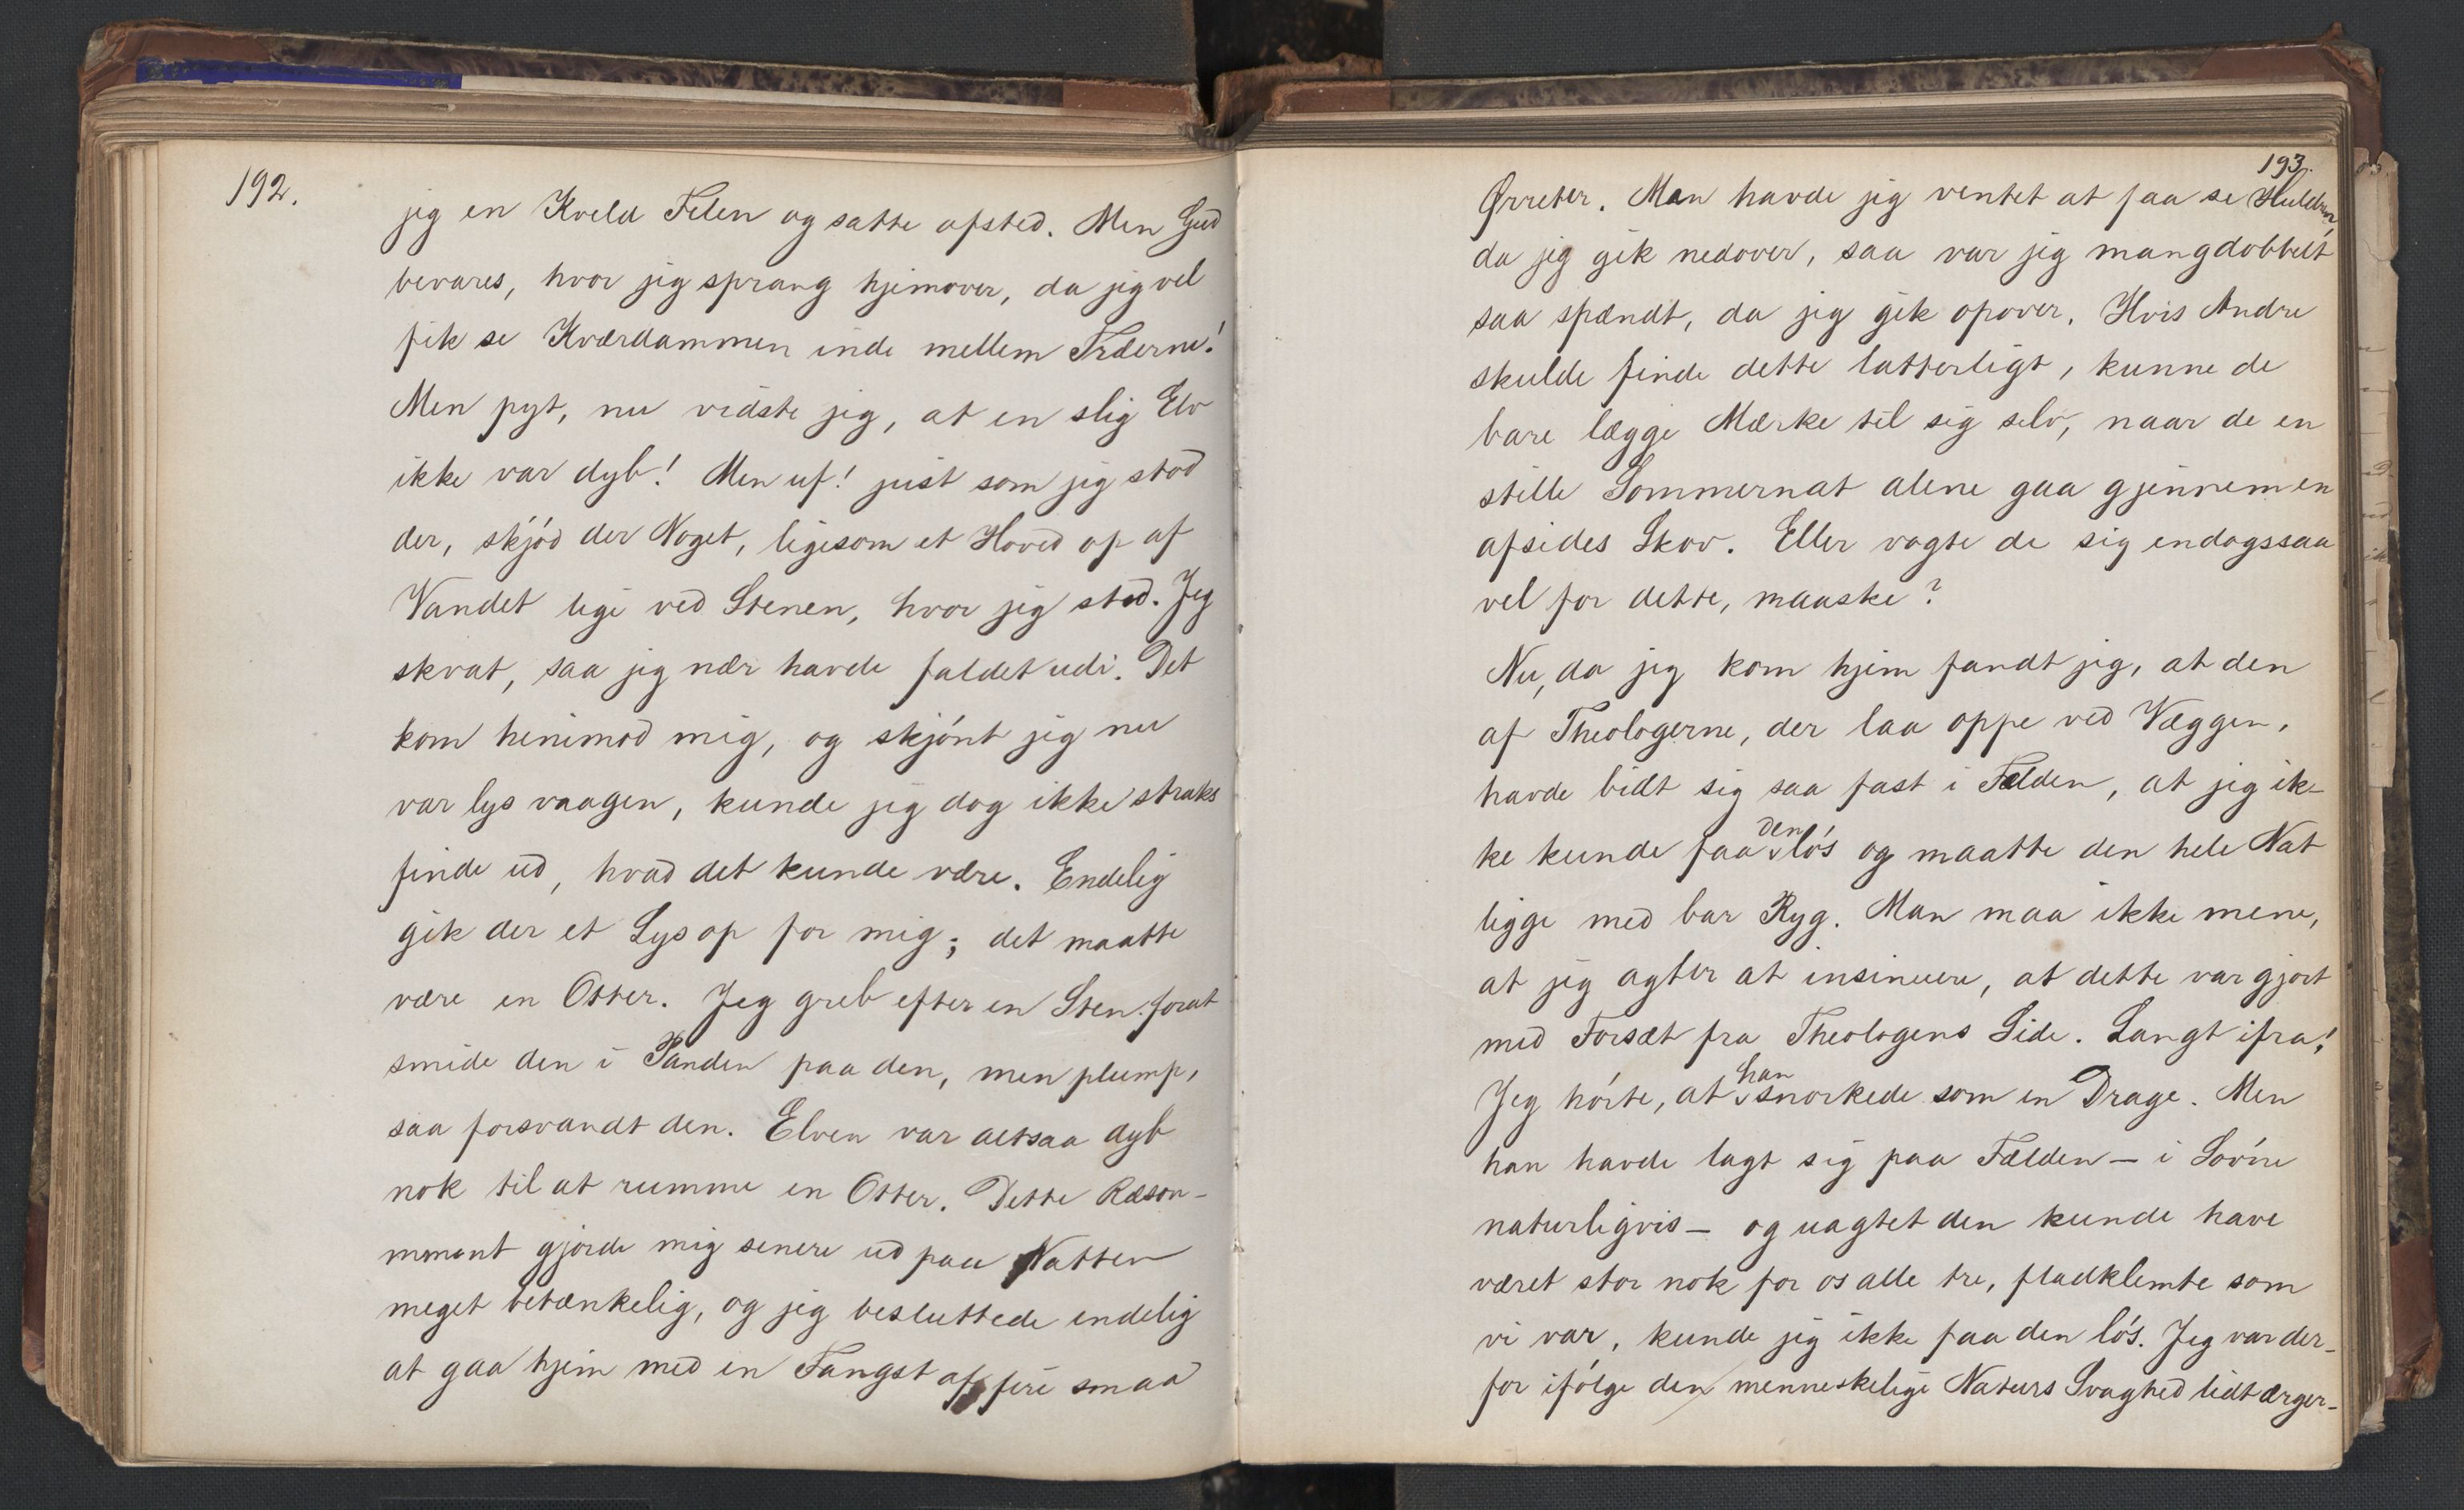 192.
jeg en Kveld Felen og satte afsted. Men Gud
bevares, hvor jeg sprang hjemover, da jeg vel
fik se Kværdammen inde mellem Træerne!
Men pyt, nu vidste jeg, at en slig Elv
ikke var dyb! Men uf! just som jeg stod
der, skjód der Noget, ligesom et Hoved op af
Vandet lige ved Stenen, hvor jeg stod. Jeg
skvat, saa jeg nær havde faldet udi. Det
kom henimod mig, og skjónt jeg nu
var lys vaagen, kunde jeg dog ikke straks
finde ud, hvad det kunde være. Endelig
gik der et Lys op for mig; det maatte
være en Otter. Jeg greb efter en Sten forat
smide den i Panden paa den, men plump,
saa forsvandt den. Elven var altsaa dyb
nok til at rumme en Otter. Dette Ræson-
mement gjorde mig senere ud paa Natten
meget betænkelig, og jeg besluttede endelig
at gaa hjem med en Fangst af fire smaa
193.
Ørreter. Men havde jeg ventet at faa se Huldren,
da jeg gik nedover, saa var jeg mangdobbelt
saa spændt, da jeg gik opover. Hvis Andre
skulde finde dette latterligt, kunne de
bare lægge Mærke til sig selv, naar de en
stille Sommernat alene gaa gjennem en
afsides Skov. Eller vogte de sig endogssaa
vel for dette, maaske?
Nu, da jeg kom hjem fandt jeg, at den
af Theologerne, der laa oppe ved Væggen,
havde bidt sig saa fast i Felden, at jeg ik-
ke kunde faa den lós og maatte den hele Nat
ligge med bar Ryg. Man maa ikke mene,
at jeg agter at insinuere, at dette var gjort
med Forsæt fra Theologens Side. Langt ifra!
Jeg hórte, at han snorkede som en Drage. Men
han havde lagt sig paa Fælden - i Sóvne
naturligvis - og uagtet den kunde have
været stor nok for os alle tre, fladklemte som
vi var, kunde jeg ikke faa den lós. Jeg var der-
for ifólge den menneskelige Naturs Svaghed lidt ærger-